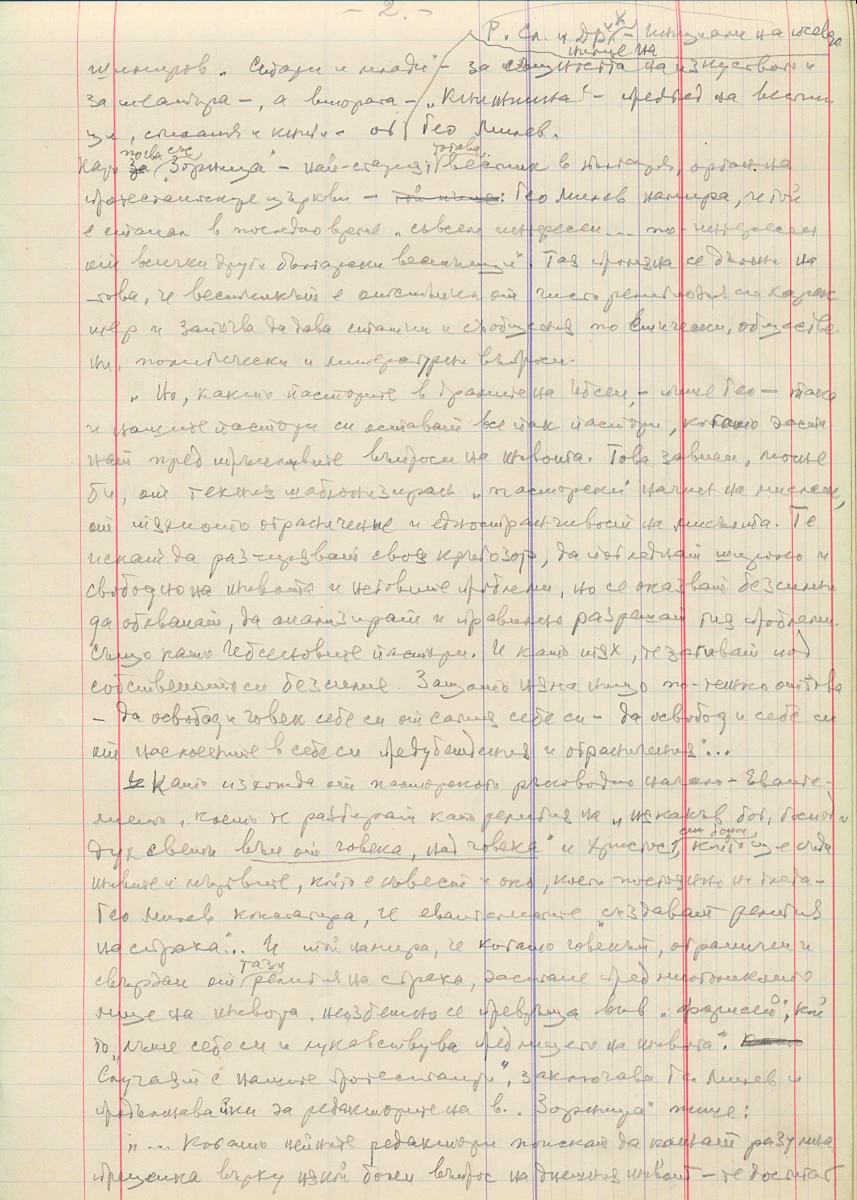 - 2. -
Р. Сп. и др. – инициали на псевдо
„Стари и млади“ – за същността на изкуството и
за театъра –, а втората – „Книжнина“ – преглед на вестни
ци, списания и книги – от Гео Милев.
Като „Зорница“ – най-старият тогава вестник в България, орган на
протестантските църкви – той пише: Гео Милев намира, че той
е станал в последно време „съвсем интересен ... по-интересен
от всички други български вестници“. Тая промяна се дължи на
това, че вестникът е отстъпил от чисто религиозния си харак
тер и започва да дава статии и съобщения по етически, обществе
ни, политически и литературни въпроси.
„Но, както пасторите в драмите на Ибсен, – пише Гео – така
и нашите пастори си остават все пак пастори, когато заста
нат пред въпроси на живота. Това зависи, може
би, от техния шаблонизиран „пасторски“ начин на мислене,
от тяхното ограничение и едностранчивост на мисълта. Те
искат да разширяват своя кръгозор, да погледнат широко и
свободно на живота и неговите проблеми, но се оказват безсилни
да обхванат, да анализират и правилно разрешат тия проблеми.
Също като Ибсеновите пастори. И като тях, те загиват под
собственото си безсилие. Защото няма нищо по-тежко от това
– да освободи човек себе си от самия себе си – да освободи себе си
от насложените в себе си предубеждения и ограничения“...
Като изхожда от пасторското ръководно начало – Еванге-
лието, което те разбират като религия на „някакъв бог, господ и
дух свети вън от човека, над човека“ и Христос, син божи, който ще съди
живите и мъртвите, който е съвест и око, което постоянно ни гледа –
Гео Милев констатира, че евангелистите „създават религия
на страха“... И той намира, че когато човекът, ограничен и
свързан от тази религия на страха, застане пред
лице на живота, неизбежно се превръща във „фарисей“, кой
то „лъже себе си и лукавствува пред лицето на живота“.
Случаят с нашите протестанти“, заключава Гео Милев и
продължавайки за редакторите на в. „Зорница“ пише:
„... Когато нейните редактори поискат да кажат разумна
преценка върху някой болен въпрос на днешния живот – те достигат